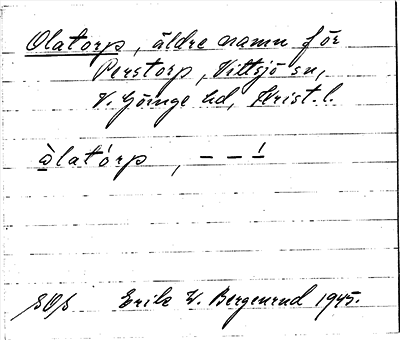 Olatorp, äldre namn för
Perstorp, Vittsjö sn,
V. Göinge hd, Krist. l.
òlatórp, – – –́
Erik W. Bergenrud 1945.